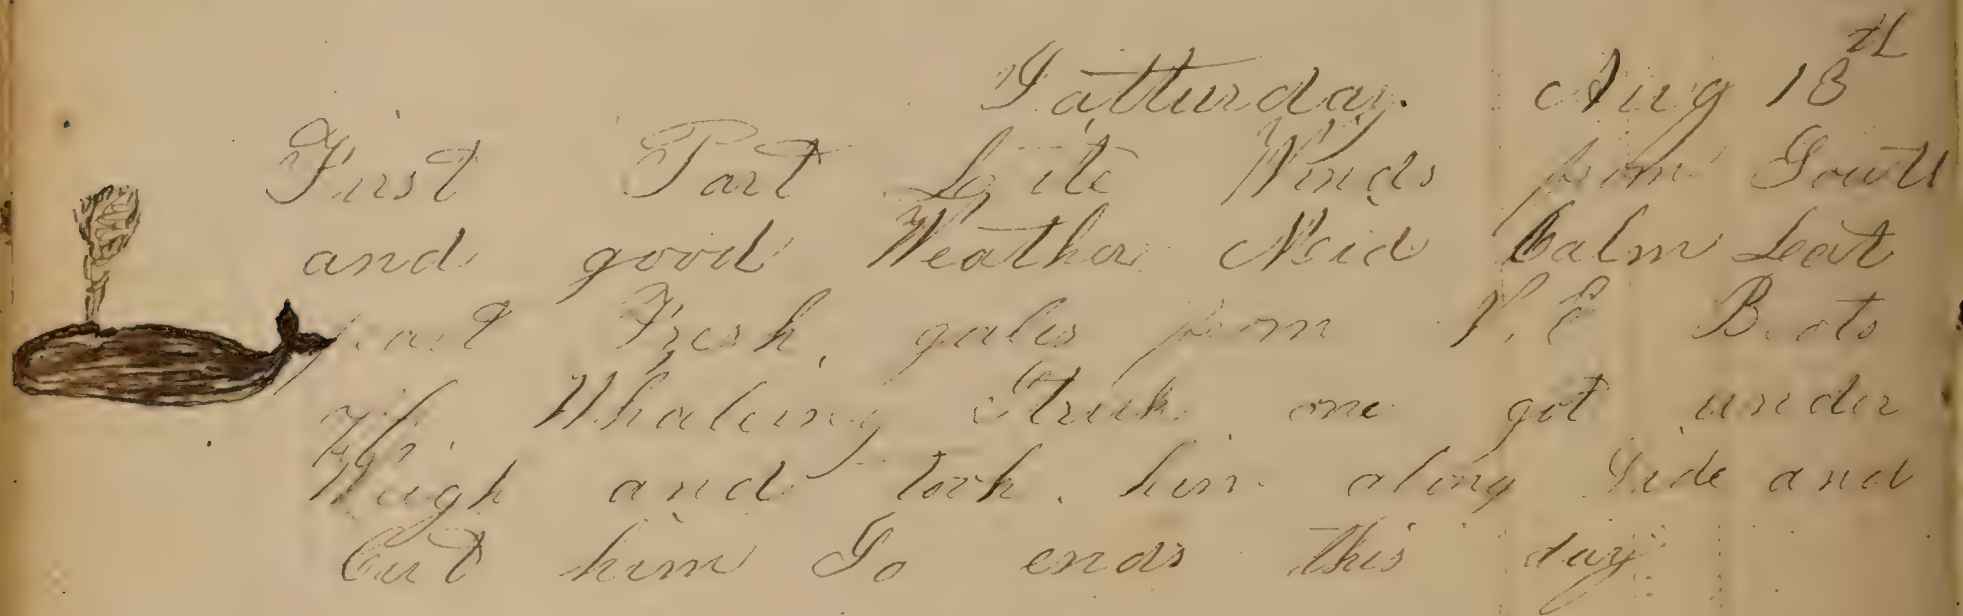 Satturday Aug 18th
First Part Lite Winds from South
and good Weather Mid Calm Leat
Part Fresh gales from N. E Boats
off Whaleing Struk one got under
Weigh and took him along Side and
Cut him So ends this day